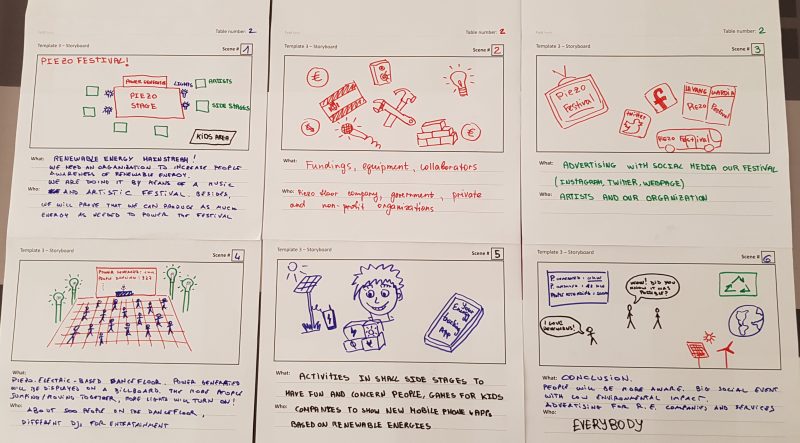 Table number: 2
Template 3 – Storyboard
Scene # 1
PIEZO FESTIVAL!
POWER GENERATED
LIGHTS
ARTISTS
PIEZO
STAGE
SIDE STAGES
KIDS AREA
What: RENEWABLE ENERGY MAINSTREAM!
WE NEED AN ORGANIZATION TO INCREASE PEOPLE
AWARENESS OF RENEWABLE ENERGY.
WE ARE DOING IT BY MEANS OF A MUSIC
Who: AND ARTISTIC FESTIVAL. BESIDES,
WE WILL PROVE THAT WE CAN PRODUCE AS MUCH
ENERGY AS NEEDED TO POWER THE FESTIVAL
Table number: 2
Template 3 – Storyboard
Scene # 2
€
€
What: Fundings, equipment, collaborators
Who: Piezo floor company, government, private
and non-profit organizations
Table number: 2
Template 3 – Storyboard
Scene # 3
Piezo
Festival
twitter
f
LA VANGUARDIA
Piezo Festival
Piezo Festival
What: ADVERTISING WITH SOCIAL MEDIA OUR FESTIVAL
(INSTAGRAM, TWITTER, WEBPAGE)
Who: ARTISTS AND OUR ORGANIZATION
Template 3 – Storyboard
Scene # 4
What: PIEZO-ELECTRIC-BASED DANCEFLOOR. POWER GENERATED
WILL BE DISPLAYED ON A BILLBOARD. THE MORE PEOPLE
JUMPING/MOVING TOGETHER, MORE LIGHTS WILL TURN ON!
Who: ABOUT 500 PEOPLE ON THE DANCEFLOOR,
DIFFERENT DJs FOR ENTERTAINMENT
Template 3 – Storyboard
Scene # 5
Your
Energy
App
What: ACTIVITIES IN SMALL SIDE STAGES TO
HAVE FUN AND CONCERN PEOPLE, GAMES FOR KIDS
Who: COMPANIES TO SHOW NEW MOBILE PHONE APPS
BASED ON RENEWABLE ENERGIES
Template 3 – Storyboard
Scene # 6
WOW! DID YOU
KNOW IT WAS
POSSIBLE?
I LOVE
What: CONCLUSION.
PEOPLE WILL BE MORE AWARE. BIG SOCIAL EVENT
WITH LOW ENVIRONMENTAL IMPACT.
Who: ADVERTISING FOR R.E. COMPANIES AND SERVICES
EVERYBODY